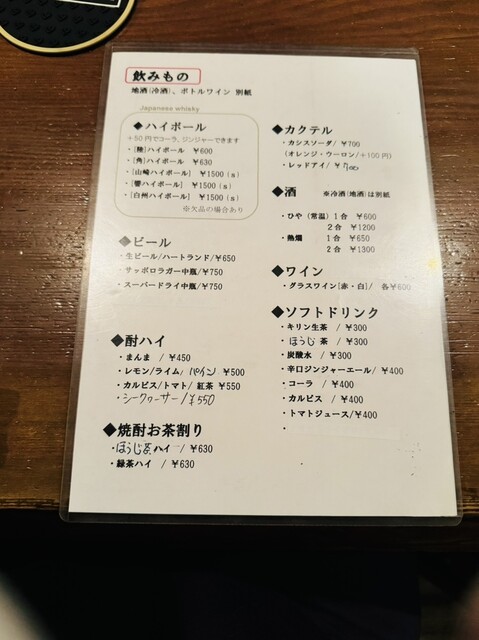 飲みもの
地酒(冷酒)、ボトルワイン 別紙
Japanese whisky
◆ハイボール
+50円でコーラ、ジンジャーできます
・[陸]ハイボール ¥600
・[角]ハイボール ¥630
・[山崎ハイボール] ¥1500(s)
・[響ハイボール] ¥1500(s)
・[白州ハイボール] ¥1500(s)
※欠品の場合あり
◆ビール
・生ビール/ハートランド/¥650
・サッポロラガー中瓶/¥750
・スーパードライ中瓶/¥750
◆酎ハイ
・まんま / ¥450
・レモン/ライム/パイン ¥500
・カルピス/トマト/ 紅茶 ¥550
・シークヮーサー/¥550
◆焼酎お茶割り
・ほうじ茶ハイ / ¥630
・緑茶ハイ / ¥630
◆カクテル
・カシスソーダ/ ¥700
(オレンジ・ウーロン/+100円)
・レッドアイ/ ¥700
◆酒 ※冷酒(地酒)は別紙
・ひや (常温) 1合 ¥600
2合 ¥1200
・熱燗 1合 ¥650
2合 ¥1300
◆ワイン
・グラスワイン[赤・白]/ 各¥600
◆ソフトドリンク
・キリン生茶 / ¥300
・ほうじ茶 / ¥300
・炭酸水 / ¥300
・辛口ジンジャーエール/ ¥400
・コーラ / ¥400
・カルピス / ¥400
・トマトジュース/ ¥400
・